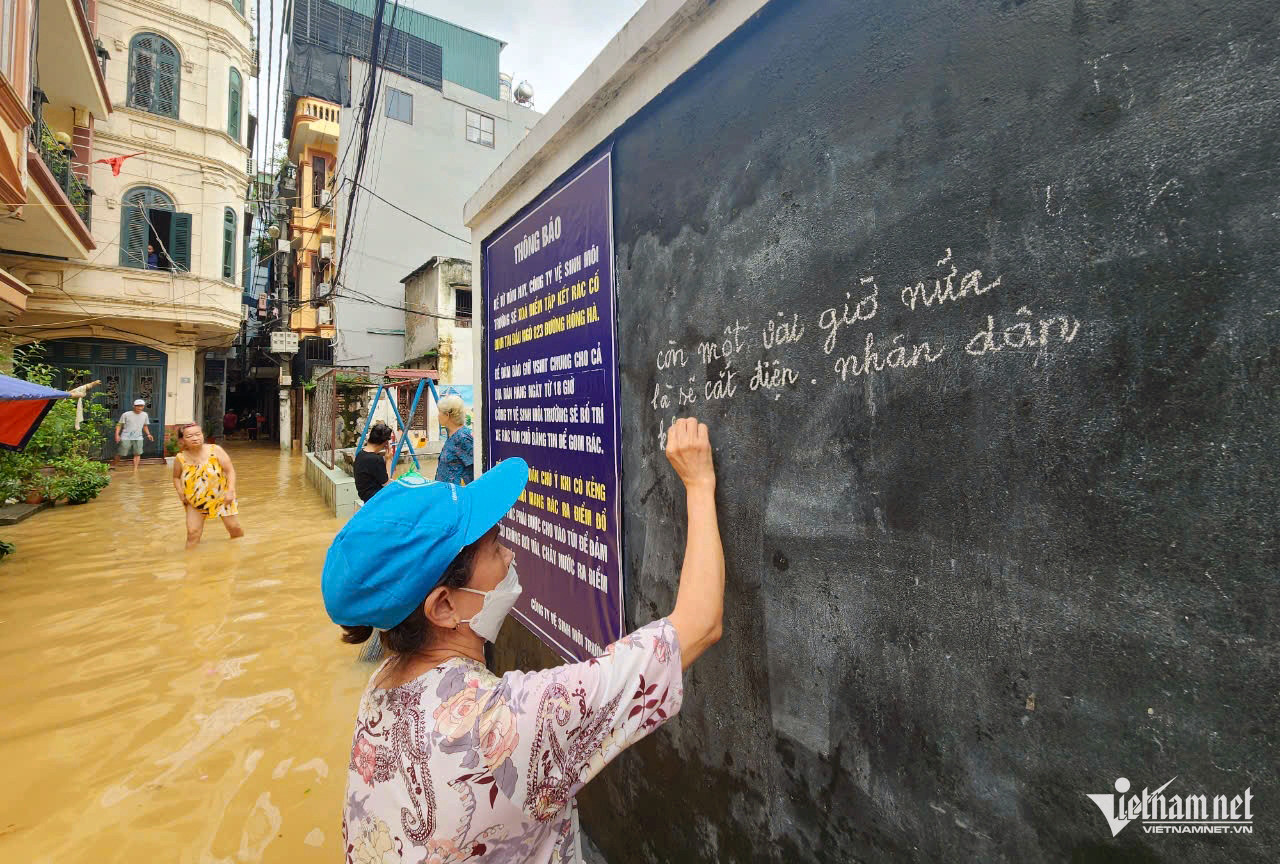 THÔNG BÁO
KỂ TỪ HÔM NAY, CÔNG TY VỆ SINH MÔI
TRƯỜNG SẼ XOÁ ĐIỂM TẬP KẾT RÁC CỐ
ĐỊNH TẠI ĐẦU NGÕ 823 ĐƯỜNG HỒNG HÀ.
ĐỂ ĐẢM BẢO GIỮ VSMT CHUNG CHO CẢ
ĐỊA BÀN HÀNG NGÀY TỪ 18 GIỜ
CÔNG TY VỆ SINH MÔI TRƯỜNG SẼ BỐ TRÍ
XE RÁC VÀO CHỖ BẢNG TIN ĐỂ GOM RÁC.
CHÚ Ý KHI CÓ KẺNG
MANG RÁC RA ĐIỂM ĐỔ
PHẢI ĐƯỢC CHO VÀO TÚI ĐỂ ĐẢM
KHÔNG RƠI VÃI, CHẢY NƯỚC RA ĐIỂM
CÔNG TY VỆ SINH MÔI TRƯỜNG
còn một vài giờ nữa
là sẽ cắt điện. nhân dân
Vietnam net
VIETNAMNET.VN